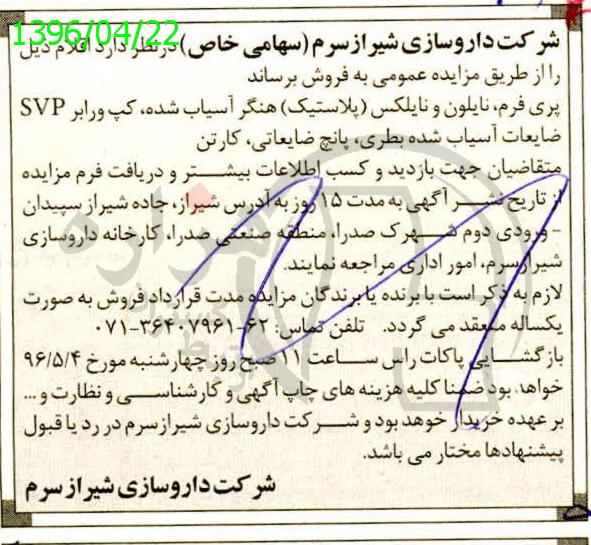 1396/04/22
شرکت داروسازی شیراز سرم (سهامی خاص) در نظر دارد اقلام ذیل
را از طریق مزایده عمومی به فروش برساند
پری فرم، نایلون و نایلکس (پلاستیک) هنگر آسیاب شده، کپ ورابر SVP
ضایعات آسیاب شده بطری، پانچ ضایعاتی، کارتن
متقاضیان جهت بازدید و کسب اطلاعات بیشتر و دریافت فرم مزایده
از تاریخ نشر آگهی به مدت ۱۵ روز به آدرس شیراز، جاده شیراز سپیدان
- ورودی دوم شهرک صدرا، منطقه صنعتی صدرا، کارخانه داروسازی
شیراز سرم، امور اداری مراجعه نمایند.
لازم به ذکر است با برنده یا برندگان مزایده مدت قرارداد فروش به صورت
یکساله منعقد می گردد. تلفن تماس: ۶۲-۰۷۱-۳۶۴۰۷۹۶۱
بازگشایی پاکات راس ساعت ۱۱ صبح روز چهارشنبه مورخ ۹۶/۵/۴
خواهد بود ضمنا کلیه هزینه های چاپ آگهی و کارشناسی و نظارت و ...
بر عهده خریدار خوهد بود و شرکت داروسازی شیراز سرم در رد یا قبول
پیشنهادها مختار می باشد.
شرکت داروسازی شیراز سرم